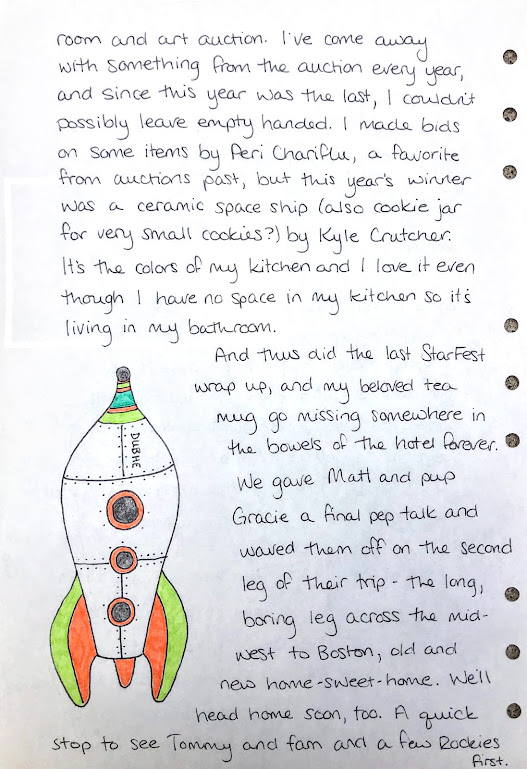 room and art auction. I've come away
with something from the auction every year,
and since this year was the last, I couldn't
possibly leave empty handed. I made bids
on some items by Peri Chariflu, a favorite
from auctions past, but this year's winner
was a ceramic space ship (also cookie jar
for very small cookies?) by Kyle Crutcher.
It's the colors of my kitchen and I love it even
though I have no space in my kitchen so it's
living in my bathroom.
And thus did the last StarFest
wrap up, and my beloved tea
mug go missing somewhere in
the bowels of the hotel forever.
DUBHE
We gave Matt and pup
Gracie a final pep talk and
waved them off on the second
leg of their trip - the long,
boring leg across the mid-
west to Boston, old and
new home-sweet-home. We'll
head home soon, too. A quick
stop to see Tommy and fam and a few Rockies
first.